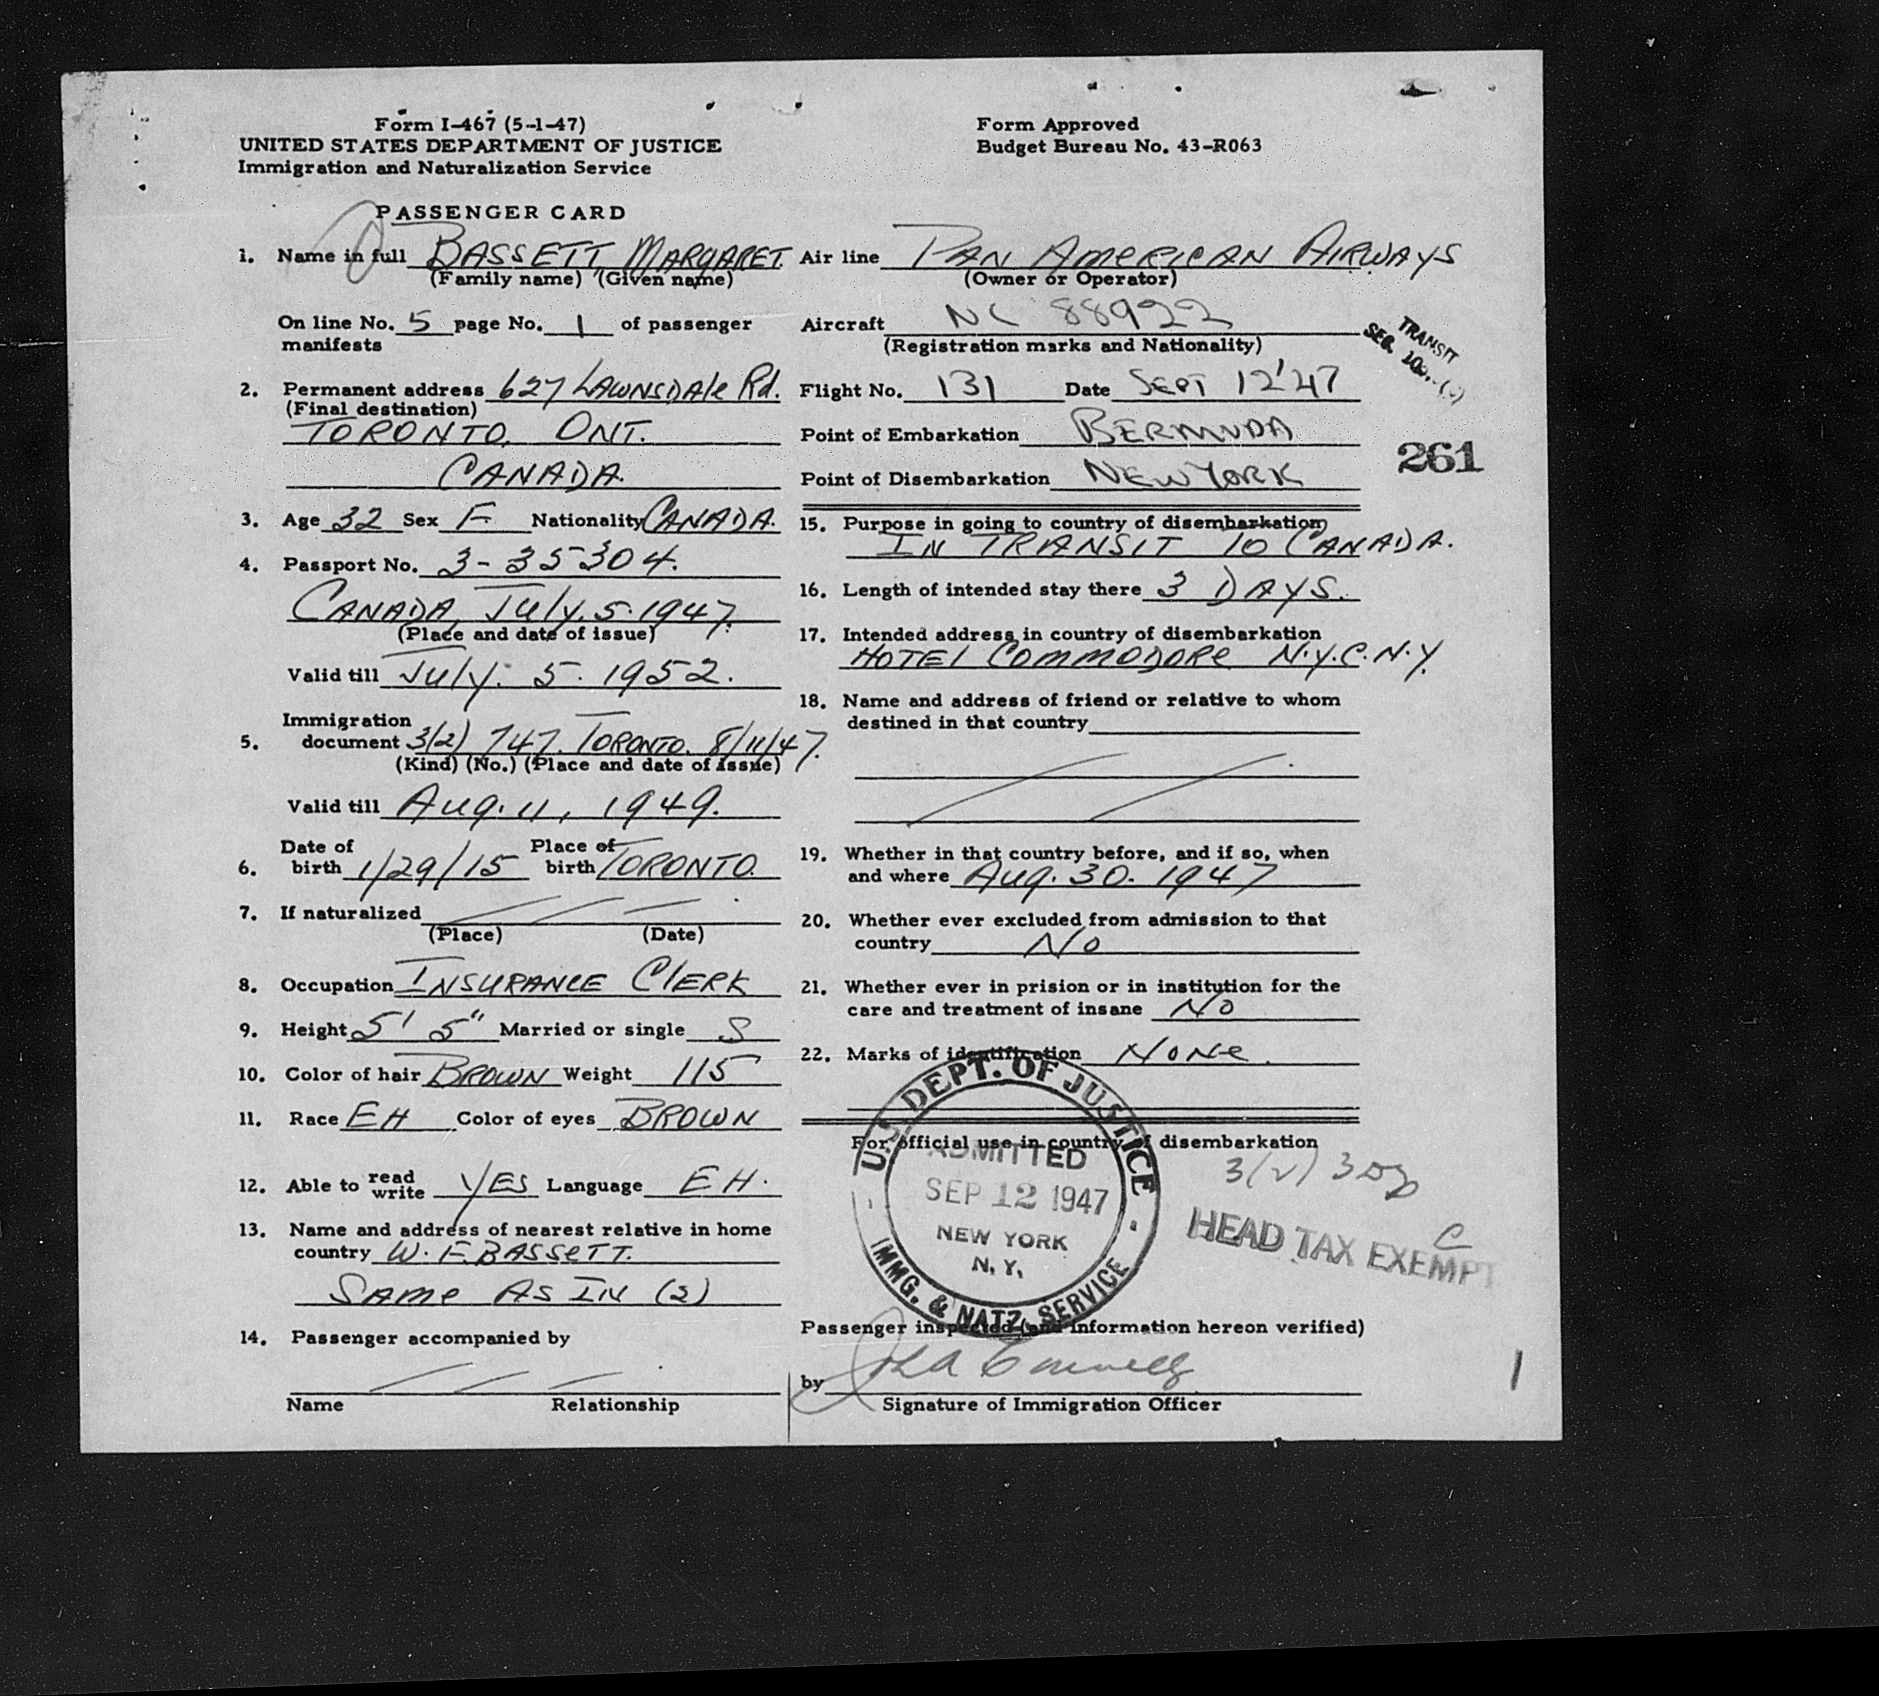 Form I-467 (5-1-47)
UNITED STATES DEPARTMENT OF JUSTICE
Immigration and Naturalization Service
Form Approved
Budget Bureau No. 43-R063
PASSENGER CARD
1. Name in full BASSETT MARGARET
(Family name) (Given name)
On line No. 5 page No. 1 of passenger
manifests
2. Permanent address 627 LAWNSDALE Rd.
(Final destination)
TORONTO, ONT.
CANADA
3. Age 32 Sex F Nationality CANADA.
4. Passport No. 3-35304.
CANADA, July. 5. 1947.
(Place and date of issue)
Valid till July. 5. 1952.
Immigration
5. document 3(2) 747. TORONTO. 8/11/47.
(Kind) (No.) (Place and date of issue)
Valid till Aug. 11, 1949.
Date of Place of
6. birth 1/29/15 birth TORONTO.
7. If naturalized
(Place) (Date)
8. Occupation INSURANCE ClERK
9. Height 5' 5" Married or single S
10. Color of hair BROWN Weight 115
11. Race EH Color of eyes BROWN
12. Able to read write YES Language EH.
13. Name and address of nearest relative in home
country W. F. BASSETT.
SAME AS IN (2)
14. Passenger accompanied by
Name Relationship
Air line PAN AMERICAN AIRWAYS
(Owner or Operator)
Aircraft NC 88922
(Registration marks and Nationality)
TRANSIT
SEC.
Flight No. 131 Date SEPT 12'47
Point of Embarkation BERMUDA
261
Point of Disembarkation NEW YORK
15. Purpose in going to country of disembarkation
IN TRANSIT TO CANADA.
16. Length of intended stay there 3 DAYS.
17. Intended address in country of disembarkation
HOTEl COMMODORE N.Y.C. N.Y.
18. Name and address of friend or relative to whom
destined in that country
19. Whether in that country before, and if so, when
and where Aug. 30. 1947
20. Whether ever excluded from admission to that
country NO
21. Whether ever in prision or in institution for the
care and treatment of insane NO
22. Marks of identification NONE.
For official use in country of disembarkation
U.S. DEPT. OF JUSTICE
ADMITTED
SEP 12 1947
NEW YORK
N.Y.
IMMG. & NATZ. SERVICE
3(2)
HEAD TAX EXEMPT
Passenger inspected (and information hereon verified)
by
Signature of Immigration Officer